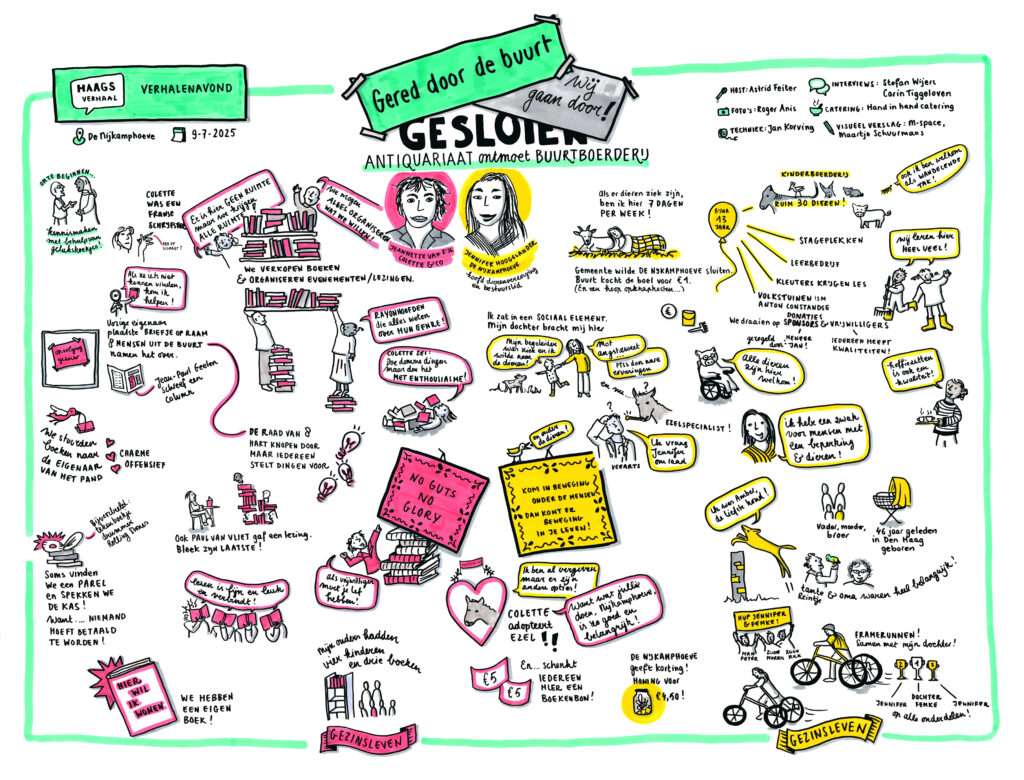 HAAGS
VERHAAL
VERHALENAVOND
De Nijkamphoeve
9-7-2025
Gered door de buurt
Wij
gaan door!
GESLOTEN
ANTIQUARIAAT ontmoet BUURTBOERDERIJ
HOST: Astrid Feiter
FOTO'S: Roger Anis
TECHNIEK: Jan Korving
INTERVIEWS: Stefan Wijers
Carin Tiggeloven
CATERING: Hand in hand catering
VISUEEL VERSLAG: M-space,
Maartje Schuurmans
OM TE BEGINNEN...
kennismaken
met behulp van
gelukskoekjes!
COLETTE
WAS EEN
FRANSE
SCHRIJFSTER
Er is hier GEEN RUIMTE
maar we krijgen
ALLE RUIMTE
We mogen
ALLES ORGANISEREN
WAT WE WILLEN!
WE VERKOPEN BOEKEN
& ORGANISEREN EVENEMENTEN/LEZINGEN.
JEANNETTE VAN EIJK
COLETTE & CO
JENNIFER HOOGELANDER
DE NIJKAMPHOEVE
hoofd dierenverzorging
en bestuurslid
Als er dieren ziek zijn,
ben ik hier 7 DAGEN
PER WEEK!
Gemeente wilde DE NIJKAMPHOEVE sluiten.
Buurt kocht de boel voor €1.
(En een hoop opknapkosten...)
€
BIJNA
13
JAAR
KINDERBOERDERIJ
RUIM 30 DIEREN!
ook ik ben welkom
als WANDELENDE
TAK!
STAGEPLEKKEN
LEERBEDRIJF
KLEUTERS KRIJGEN LES
VOLKSTUINEN ISM
ANTON CONSTANDSE
DONATIES
We draaien op SPONSORS & VRIJWILLIGERS
geregeld door MENEER JAN!
IEDEREEN HEEFT
KWALITEITEN!
Wij leren hier
HEEL VEEL!
koffiezetten
is ook een
kwaliteit!
Als ze iets niet
kunnen vinden,
kom ik
helpen!
Vorige eigenaar
plaatste BRIEFJE OP RAAM
8 MENSEN UIT DE BUURT
namen het over.
opvolging
gezocht
Jean-Paul Geelen
schreef een
column
RAYONHOOFDEN
die alles weten
over HUN GENRE!
COLETTE ZEI:
Doe domme dingen
maar doe het
MET ENTHOUSIASME!
Ik zat in een SOCIAAL ELEMENT.
Mijn dochter bracht mij hier
Mijn begeleider
was ziek en ik
wilde naar
de dieren!
Met
angststoornis
PTSS door nare
ervaringen
en ...
Alle dieren
zijn hier
welkom!
EZELSPECIALIST!
VEEARTS
Ik vraag
Jennifer
om raad
ik heb een zwak
voor mensen met
een beperking
& dieren!
We stuurden
boeken naar
de EIGENAAR
VAN HET PAND
CHARME
OFFENSIEF
DE RAAD VAN 8
HAKT KNOPEN DOOR
MAAR IEDEREEN
STELT DINGEN VOOR
NO GUTS
NO
GLORY
en onder
de dieren!
KOM IN BEWEGING
ONDER DE MENSEN
DAN KOMT ER
BEWEGING
IN JE LEVEN!
Ik was Amber,
de liefste hond!
Vader, moeder,
broer
46 jaar geleden
in Den Haag
geboren
Bijvoorbeeld:
tekenboekje
drummer
Rolling Stones
Soms vinden
we een PAREL
EN SPEKKEN WE
DE KAS!
Want... NIEMAND
HOEFT BETAALD
TE WORDEN!
OOK PAUL VAN VLIET gaf een lezing.
Bleek zijn LAATSTE!
lezen is fijn en leuk
en verbindt!
Als vrijwilliger
moet je lef
hebben!
Ik ben al vergeven
maar er zijn
andere opties!
COLETTE
adopteert
EZEL !!
Want wat jullie
doen, Nijkamphoeve,
is zo goed en
belangrijk!
tante
Reintje & oma waren heel belangrijk!
HUP JENNIFER
& FEMKE!
MAN
PETER
ZOON
MORRIS
ZOON
RICK
FRAMERUNNEN!
Samen met mijn dochter!
2 1 3
JENNIFER
DOCHTER
FEMKE
JENNIFER
op alle onderdelen!
HIER
WIL
IK
WONEN.
WE HEBBEN
EEN EIGEN
BOEK!
Mijn ouders hadden
vier kinderen
en drie boeken
€5
€5
En... schenkt
IEDEREEN
HIER EEN
BOEKENBON!
DE NIJKAMPHOEVE
geeft korting!
HONING voor
€4,50!
GEZINSLEVEN
GEZINSLEVEN